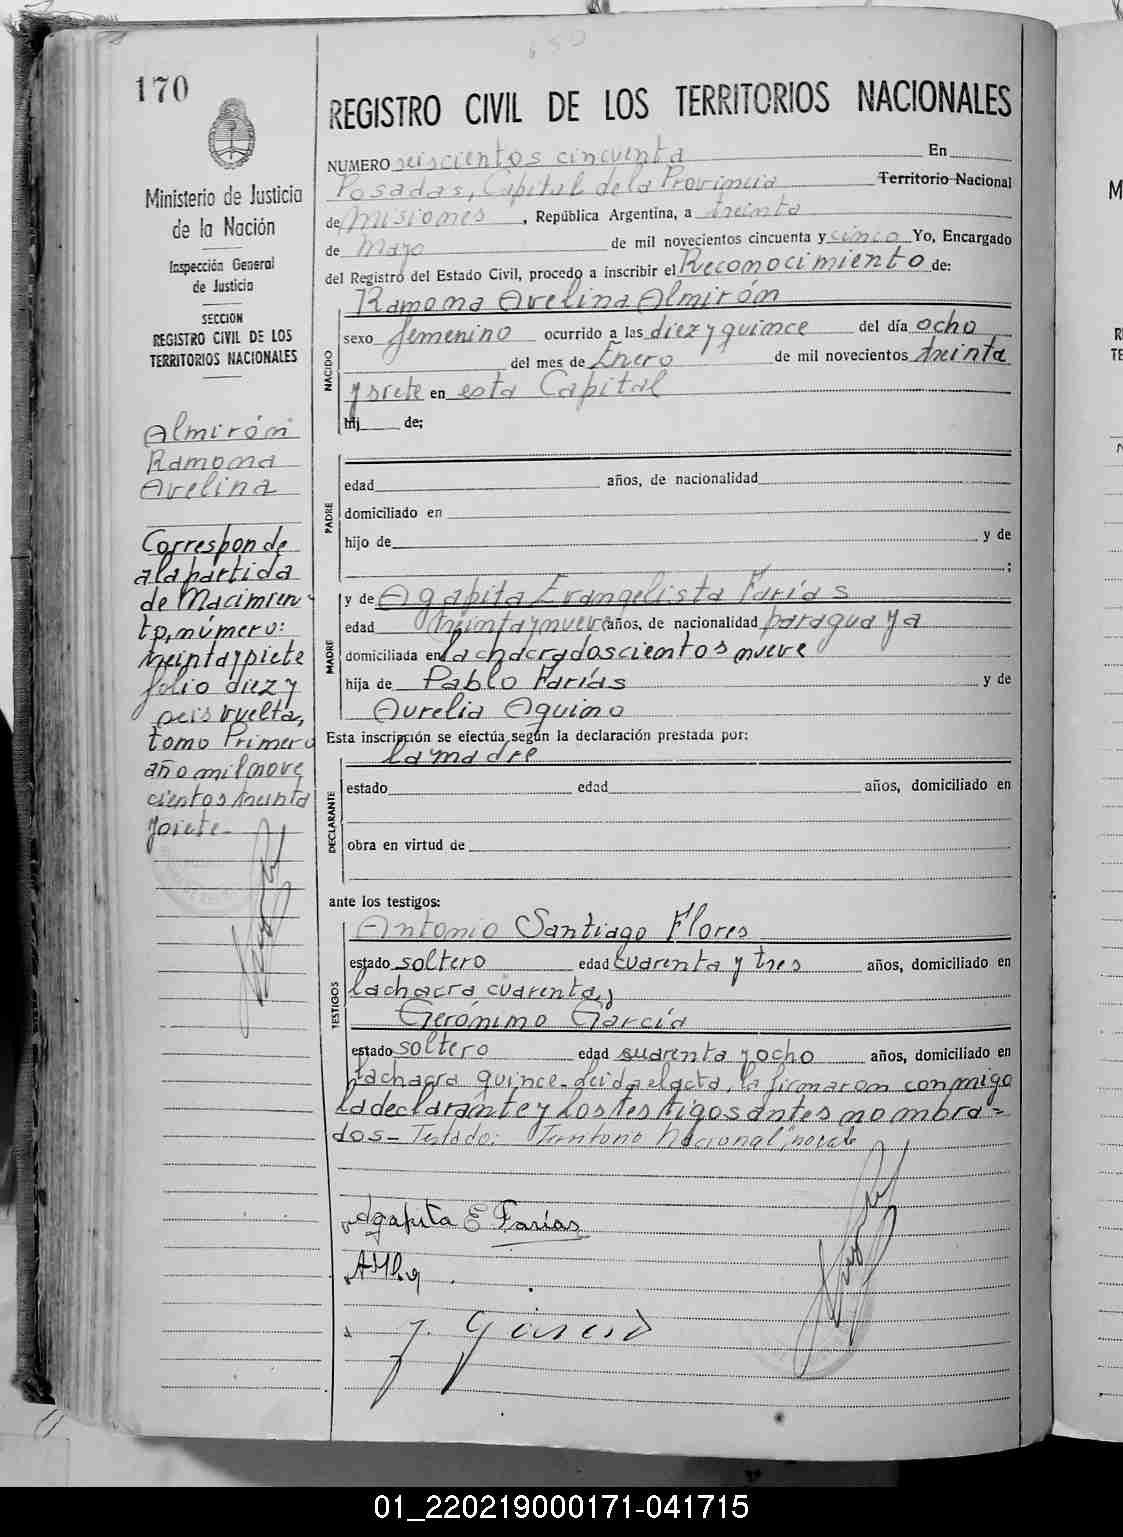 650
170
REGISTRO CIVIL DE LOS TERRITORIOS NACIONALES
Ministerio de Justicia
de la Nación
Inspección General
de Justicia
SECCION
REGISTRO CIVIL DE LOS
TERRITORIOS NACIONALES
Almirón
Ramona
Avelina
Corresponde
a la partida
de Nacimien-
to, número:
treinta y siete
folio diez y
seis vuelta,
tomo Primero
año mil nove
cientos treinta
y siete-
NUMERO seiscientos cincuenta En
Posadas, Capital de la Provincia Territorio Nacional
de Misiones, República Argentina, a treinta
de Mayo de mil novecientos cincuenta y cinco Yo, Encargado
del Registro del Estado Civil, procedo a inscribir el Reconocimiento de:
Ramona Avelina Almirón
NACIDO
sexo femenino ocurrido a las diez y quince del día ocho
del mes de Enero de mil novecientos treinta
y siete en esta Capital
hij de;
PADRE
edad años, de nacionalidad
domiciliado en
hijo de y de
;
MADRE
y de Agapita Evangelista Farías
edad treinta y nueve años, de nacionalidad paraguaya
domiciliada en la chacra doscientos nueve
hija de Pablo Farías y de
Aurelia Aquino
Esta inscripción se efectúa según la declaración prestada por:
la madre
DECLARANTE
estado edad años, domiciliado en
obra en virtud de
ante los testigos:
TESTIGOS
Antonio Santiago Flores
estado soltero edad cuarenta y tres años, domiciliado en
la chacra cuarenta y
Gerónimo García
estado soltero edad cuarenta y ocho años, domiciliado en
la chacra quince- leida el acta, la firmaron conmigo
la declarante y los testigos antes nombra-
dos- Testado: "Territorio Nacional", no vale
Agapita E Farías
J. García
01_220219000171-041715